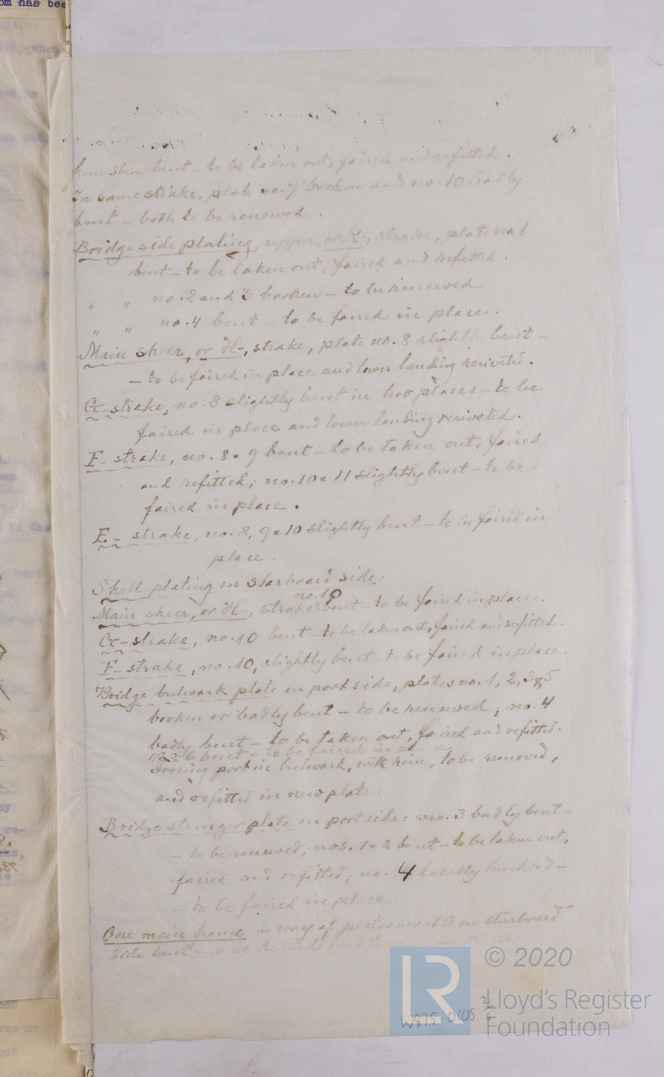 bent - to be taken out, faired and refitted.
In same strake, plate no. 9 broken and no. 10 badly
bent - both to be renewed.
Bridge side plating, upper, or K, strake, plate no 1
bent - to be taken out, faired and refitted.
" " no. 2 and 3 broken - to be renewed
" " no. 4 bent - to be faired in place.
Main sheer, or H-, strake, plate no. 8 slightly bent -
- to be faired in place and lower landing reriveted.
G-strake, no. 8 slightly bent in two places - to be
faired in place and lower landing reriveted.
F-strake, no. 8 & 9 bent - to be taken out, faired
and refitted; no. 10 & 11 slightly bent - to be
faired in place.
E-strake, no. 8, 9 & 10 slightly bent - to be faired in
place.
Shell plating on starboard side,
Main sheer, or H-, strake no. 10 bent - to be faired in place.
G-strake, no. 10 bent - to be taken out, faired and refitted.
F-strake, no. 10, slightly bent - to be faired in place.
Bridge bulwark plate on port side, plates no. 1, 2, 3 & 5
broken or badly bent - to be renewed; no. 4
badly bent - to be taken out, faired and refitted.
no. 6 bent - to be faired in place
port in bulwark, with to be removed,
and refitted in new plate.
Bridge stringer plate on port side: no. 3 badly bent -
- to be renewed; nos. 1 & 2 bent - to be taken out,
faired and refitted; no. 4 locally buckled -
- to be faired in place
One main frame in way of plates no. 10 on starboard
side bent - to be
W875 0105 2/6
LR © 2020
Lloyd's Register
Foundation